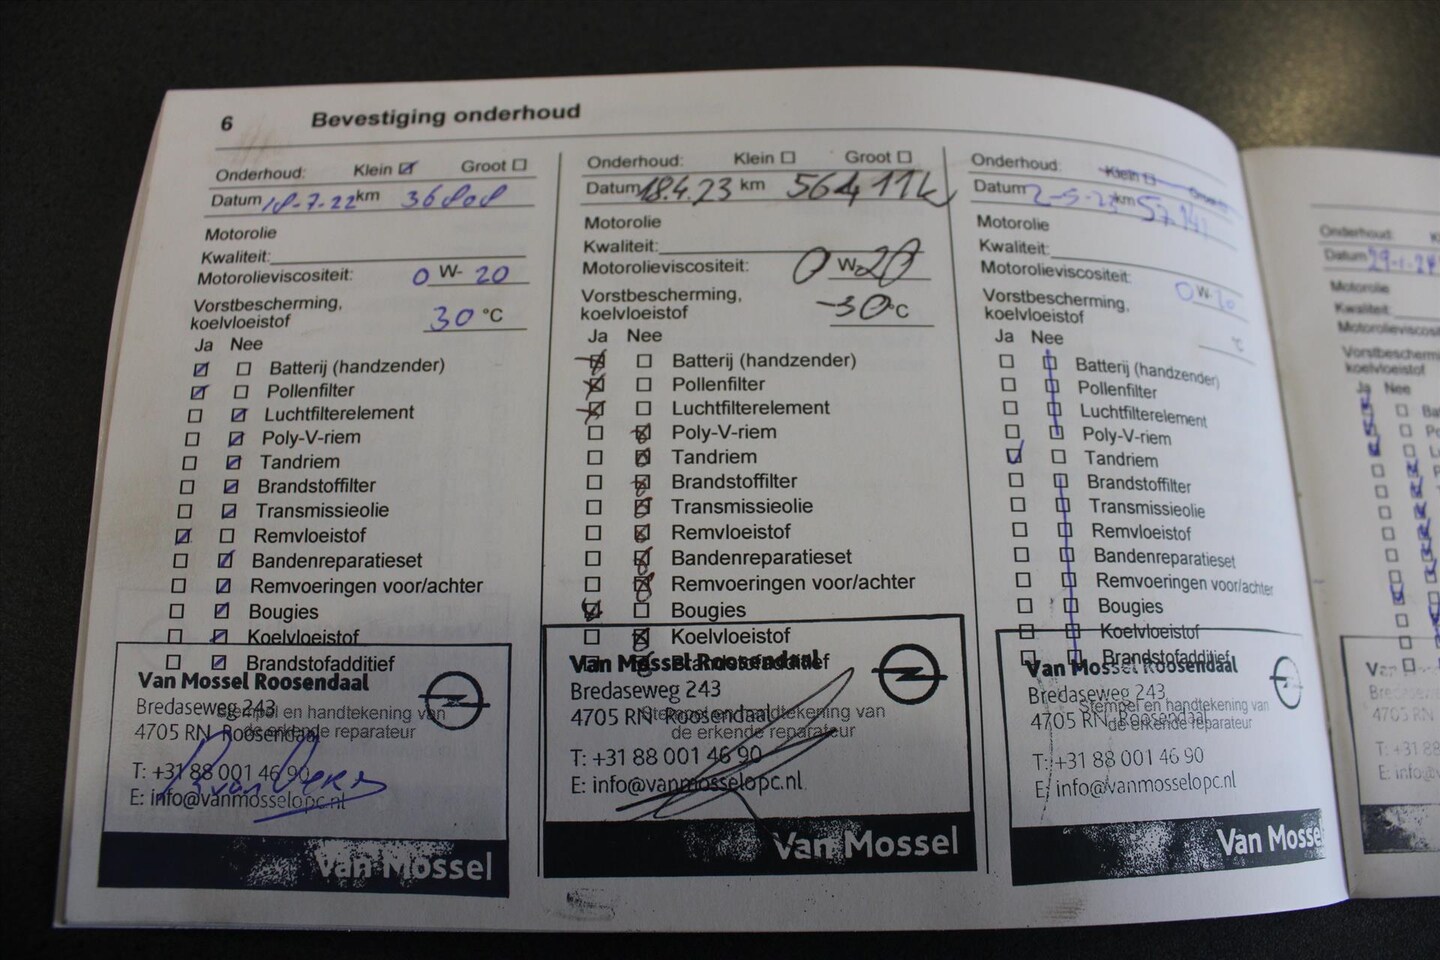 6 Bevestiging onderhoud
Onderhoud: Klein Groot
Datum 18-7-22 km 36808
Motorolie
Kwaliteit:
Motorolieviscositeit: 0 W- 20
Vorstbescherming,
koelvloeistof 30 °C
Ja Nee
Batterij (handzender)
Pollenfilter
Luchtfilterelement
Poly-V-riem
Tandriem
Brandstoffilter
Transmissieolie
Remvloeistof
Bandenreparatieset
Remvoeringen voor/achter
Bougies
Koelvloeistof
Brandstofadditief
Van Mossel Roosendaal
Bredaseweg 243
Stempel en handtekening van
4705 RN Roosendaal
de erkende reparateur
T: +31 88 001 46 90
E: info@vanmosselopc.nl
Van Mossel
Onderhoud: Klein Groot
Datum 18.4.23 km 56411k
Motorolie
Kwaliteit:
Motorolieviscositeit: 0 W 20
Vorstbescherming,
koelvloeistof -30 °C
Ja Nee
Batterij (handzender)
Pollenfilter
Luchtfilterelement
Poly-V-riem
Tandriem
Brandstoffilter
Transmissieolie
Remvloeistof
Bandenreparatieset
Remvoeringen voor/achter
Bougies
Koelvloeistof
Brandstofadditief
Van Mossel Roosendaal
Bredaseweg 243
Stempel en handtekening van
4705 RN Roosendaal
de erkende reparateur
T: +31 88 001 46 90
E: info@vanmosselopc.nl
Van Mossel
Onderhoud: Klein Groot
Datum km
Motorolie
Kwaliteit:
Motorolieviscositeit: 0 W-
Vorstbescherming,
koelvloeistof °C
Ja Nee
Batterij (handzender)
Pollenfilter
Luchtfilterelement
Poly-V-riem
Tandriem
Brandstoffilter
Transmissieolie
Remvloeistof
Bandenreparatieset
Remvoeringen voor/achter
Bougies
Koelvloeistof
Brandstofadditief
Van Mossel Roosendaal
Bredaseweg 243
Stempel en handtekening van
4705 RN Roosendaal
de erkende reparateur
T: +31 88 001 46 90
E: info@vanmosselopc.nl
Van Mosse
Onderhoud:
Datum
Motorolie
Kwaliteit:
Motorolieviscosite
Vorstbescherm
koelvloeistof
Ja Nee
Van
4705 RN
T: +31 88
E: info@v